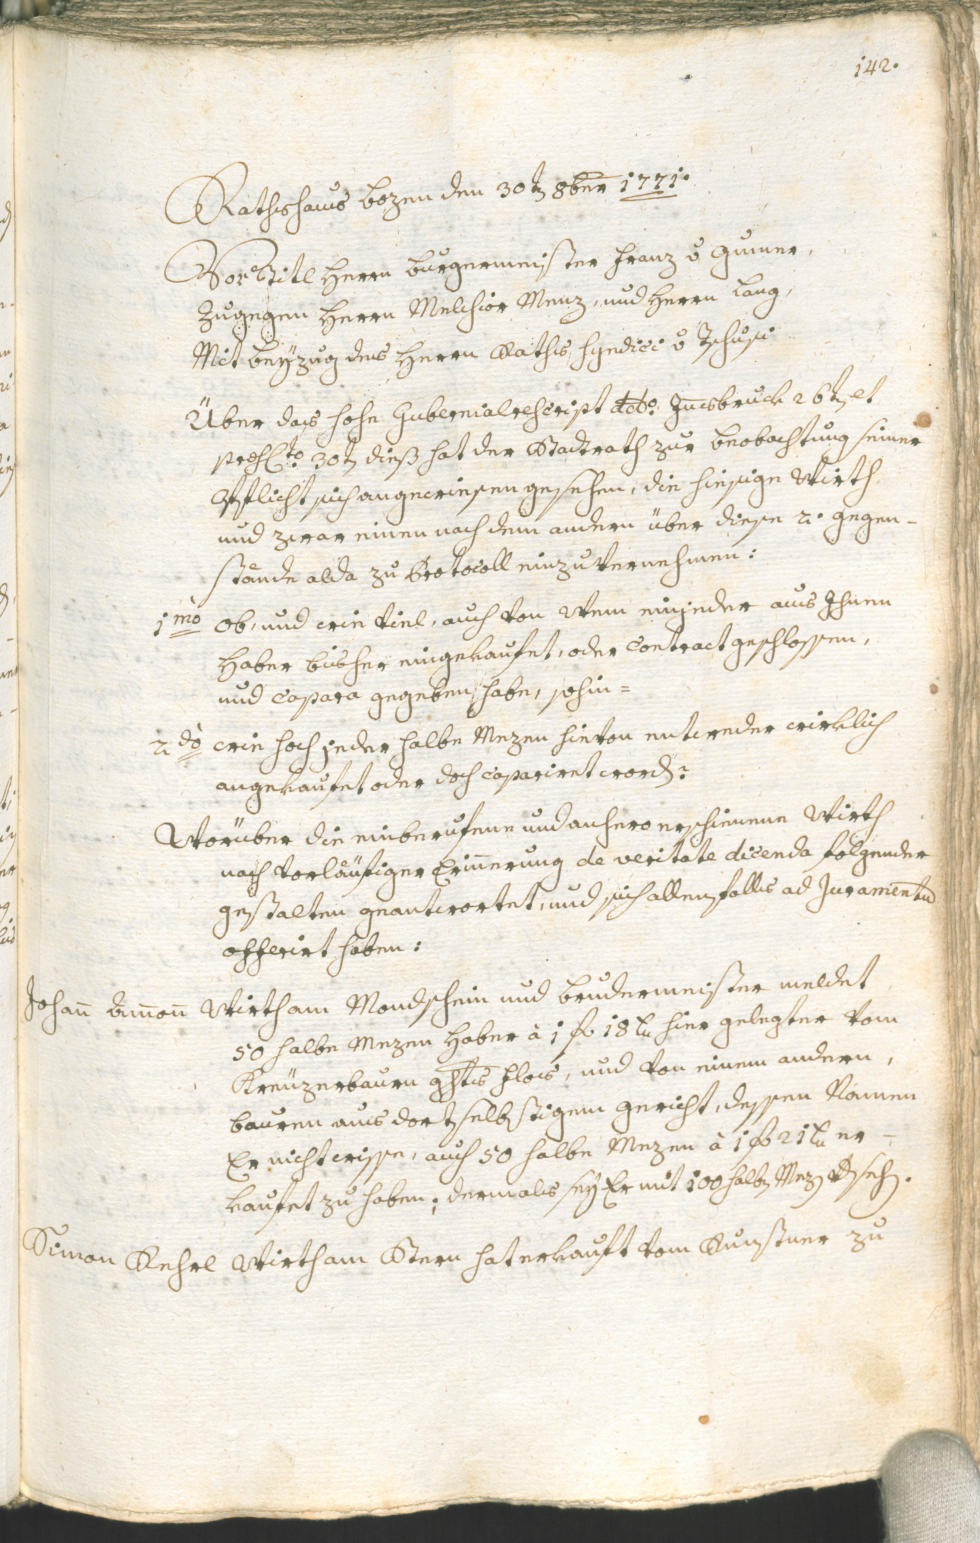 142.
Rathshaus Bozen den 30t 8ber 1771.
Vor Titl Herrn Burgermeister Franz v Gumer,
Zugegen Herrn Melchior Menz, und Herrn Lang,
Mit beÿzug des Herrn Raths Syndici v
Über das hohe Gubernialrescript ddo. Innsbruck 26t et
30t dieß hat der Stadtrath zur beobachtung seiner
Pflicht sich angewiesen gesehen, die hiesige Wirth
und zwar einen nach dem andern über diese 2. gegen-
stände alda zu Protocoll einzuvernehmen:
1mo ob, und wie viel, auch von wem ein jeder aus Ihnen
Haber bisher eingekaufet, oder Contract geschlossen,
und Capara gegeben habe, sohin=
2do wie hoch jeder halbe Mezen hievon entweder wirklich
angekaufet oder doch capariret word:
Worüber die einberufene und anhero erschienene Wirth
nach vorläufiger Erinerung de veritate dicenda folgender
gestalten geantwortet, und sich allenfalls ad Juramentu
offerirt haben:
Johan Wirth am Mondschein und Brudermeister meldet
50 halbe Mezen Haber à 1 f 18 hier gelegter vom
Kreüzerbaurn und von einem andern,
bauren aus dortselbstigem gericht, dessen Namen
Er nicht wisse, auch 50 halbe Mezen à 1 f 21 er-
kaufet zu haben; dermals seÿ Er mit 100 halb Mez vseh.
Simon Kehrl Wirth am Stern hat erkauft vom zu